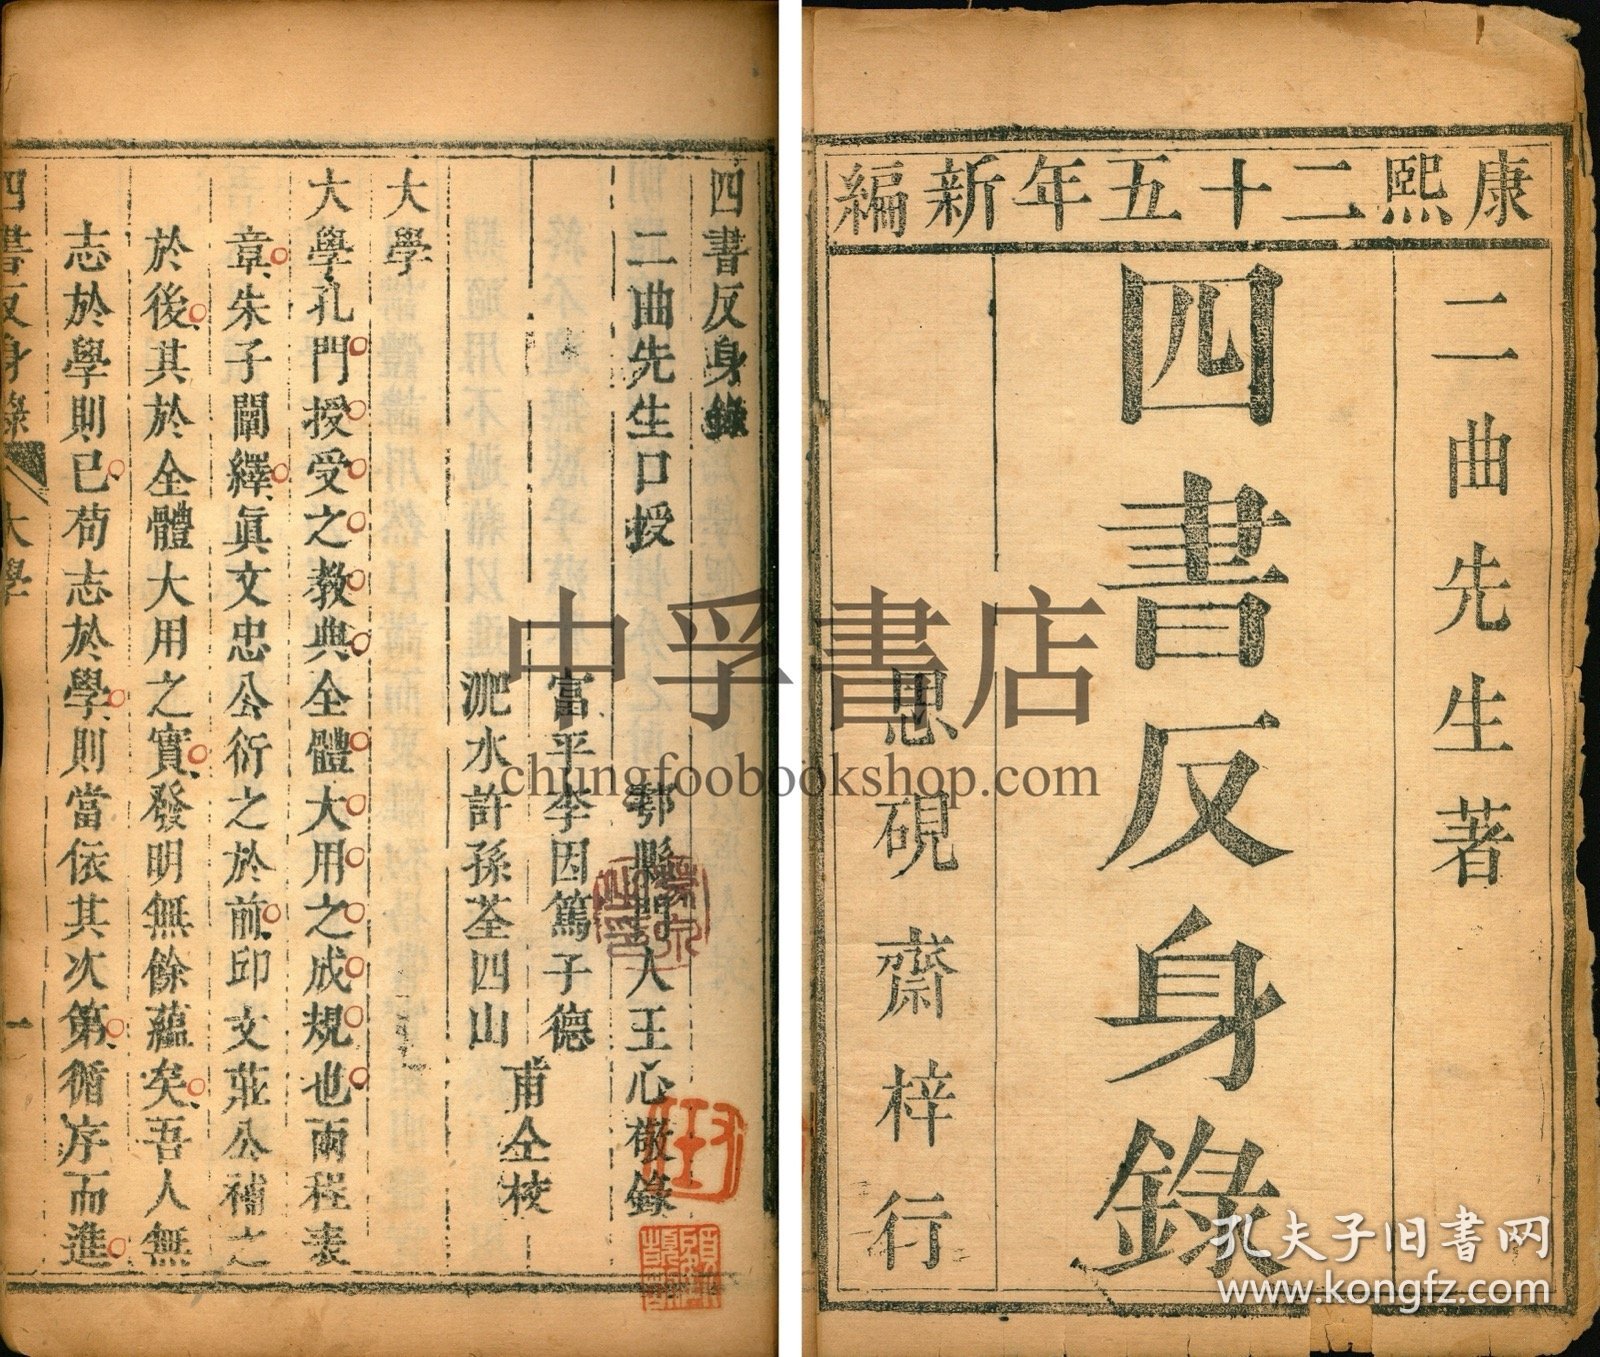 康熙二十五年新編
二曲先生著
四書反身錄
思硯齋梓行
四書反身錄
二曲先生口授
鄠縣門人王心敬錄
富平李因篤子德
淝水許孫荃四山
甫仝校
大學
大學孔門授受之教典全體大用之成規也兩程表
章朱子闡繹眞文忠公衍之於前邱文莊公補之
於後其於全體大用之實發明無餘蘊矣吾人無
志於學則已苟志於學則當依其次第循序而進
四書反身錄
大學
一
中孚書店
chungfoobookshop.com
孔夫子旧书网
www.kongfz.com